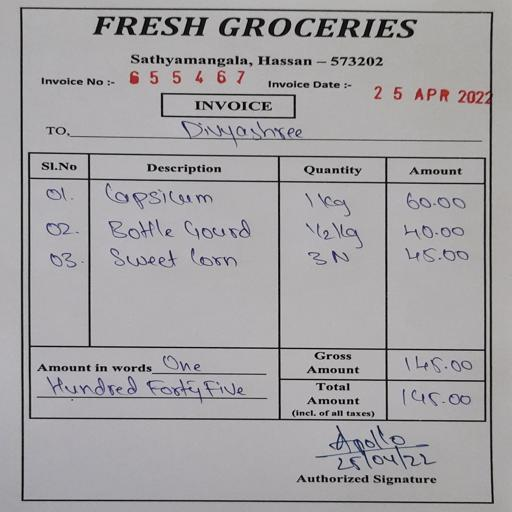 FRESH GROCERIES
Sathyamangala, Hassan – 573202
Invoice No :- 655467 Invoice Date :- 25 APR 2022
INVOICE
TO, Divyashree
Sl.No Description Quantity Amount
01. Capsicum 1 kg 60.00
02. Bottle Gourd 1/2 kg 40.00
03. Sweet Corn 3 N 45.00
Amount in words One
Hundred Forty Five
Gross
Amount 145.00
Total
Amount 145.00
(incl. of all taxes)
Apollo
25/04/22
Authorized Signature